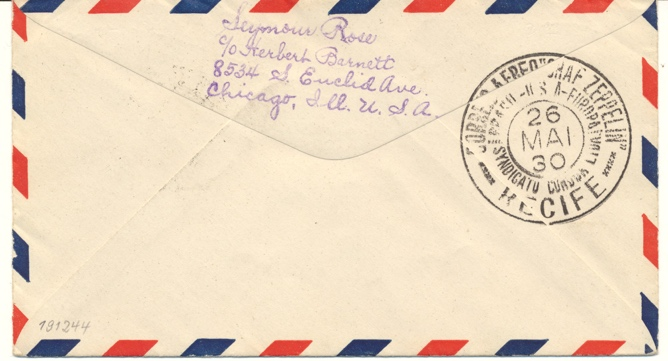 Seymour Rose
c/o Herbert Barnett
8534 S. Euclid Ave.
Chicago, Ill. U. S. A.
CORREIO AEREO "GRAF ZEPPELIN"
BRASIL-U.S.A-EUROPA
26
MAI
30
SYNDICATO CONDOR LTDA
RECIFE
191244